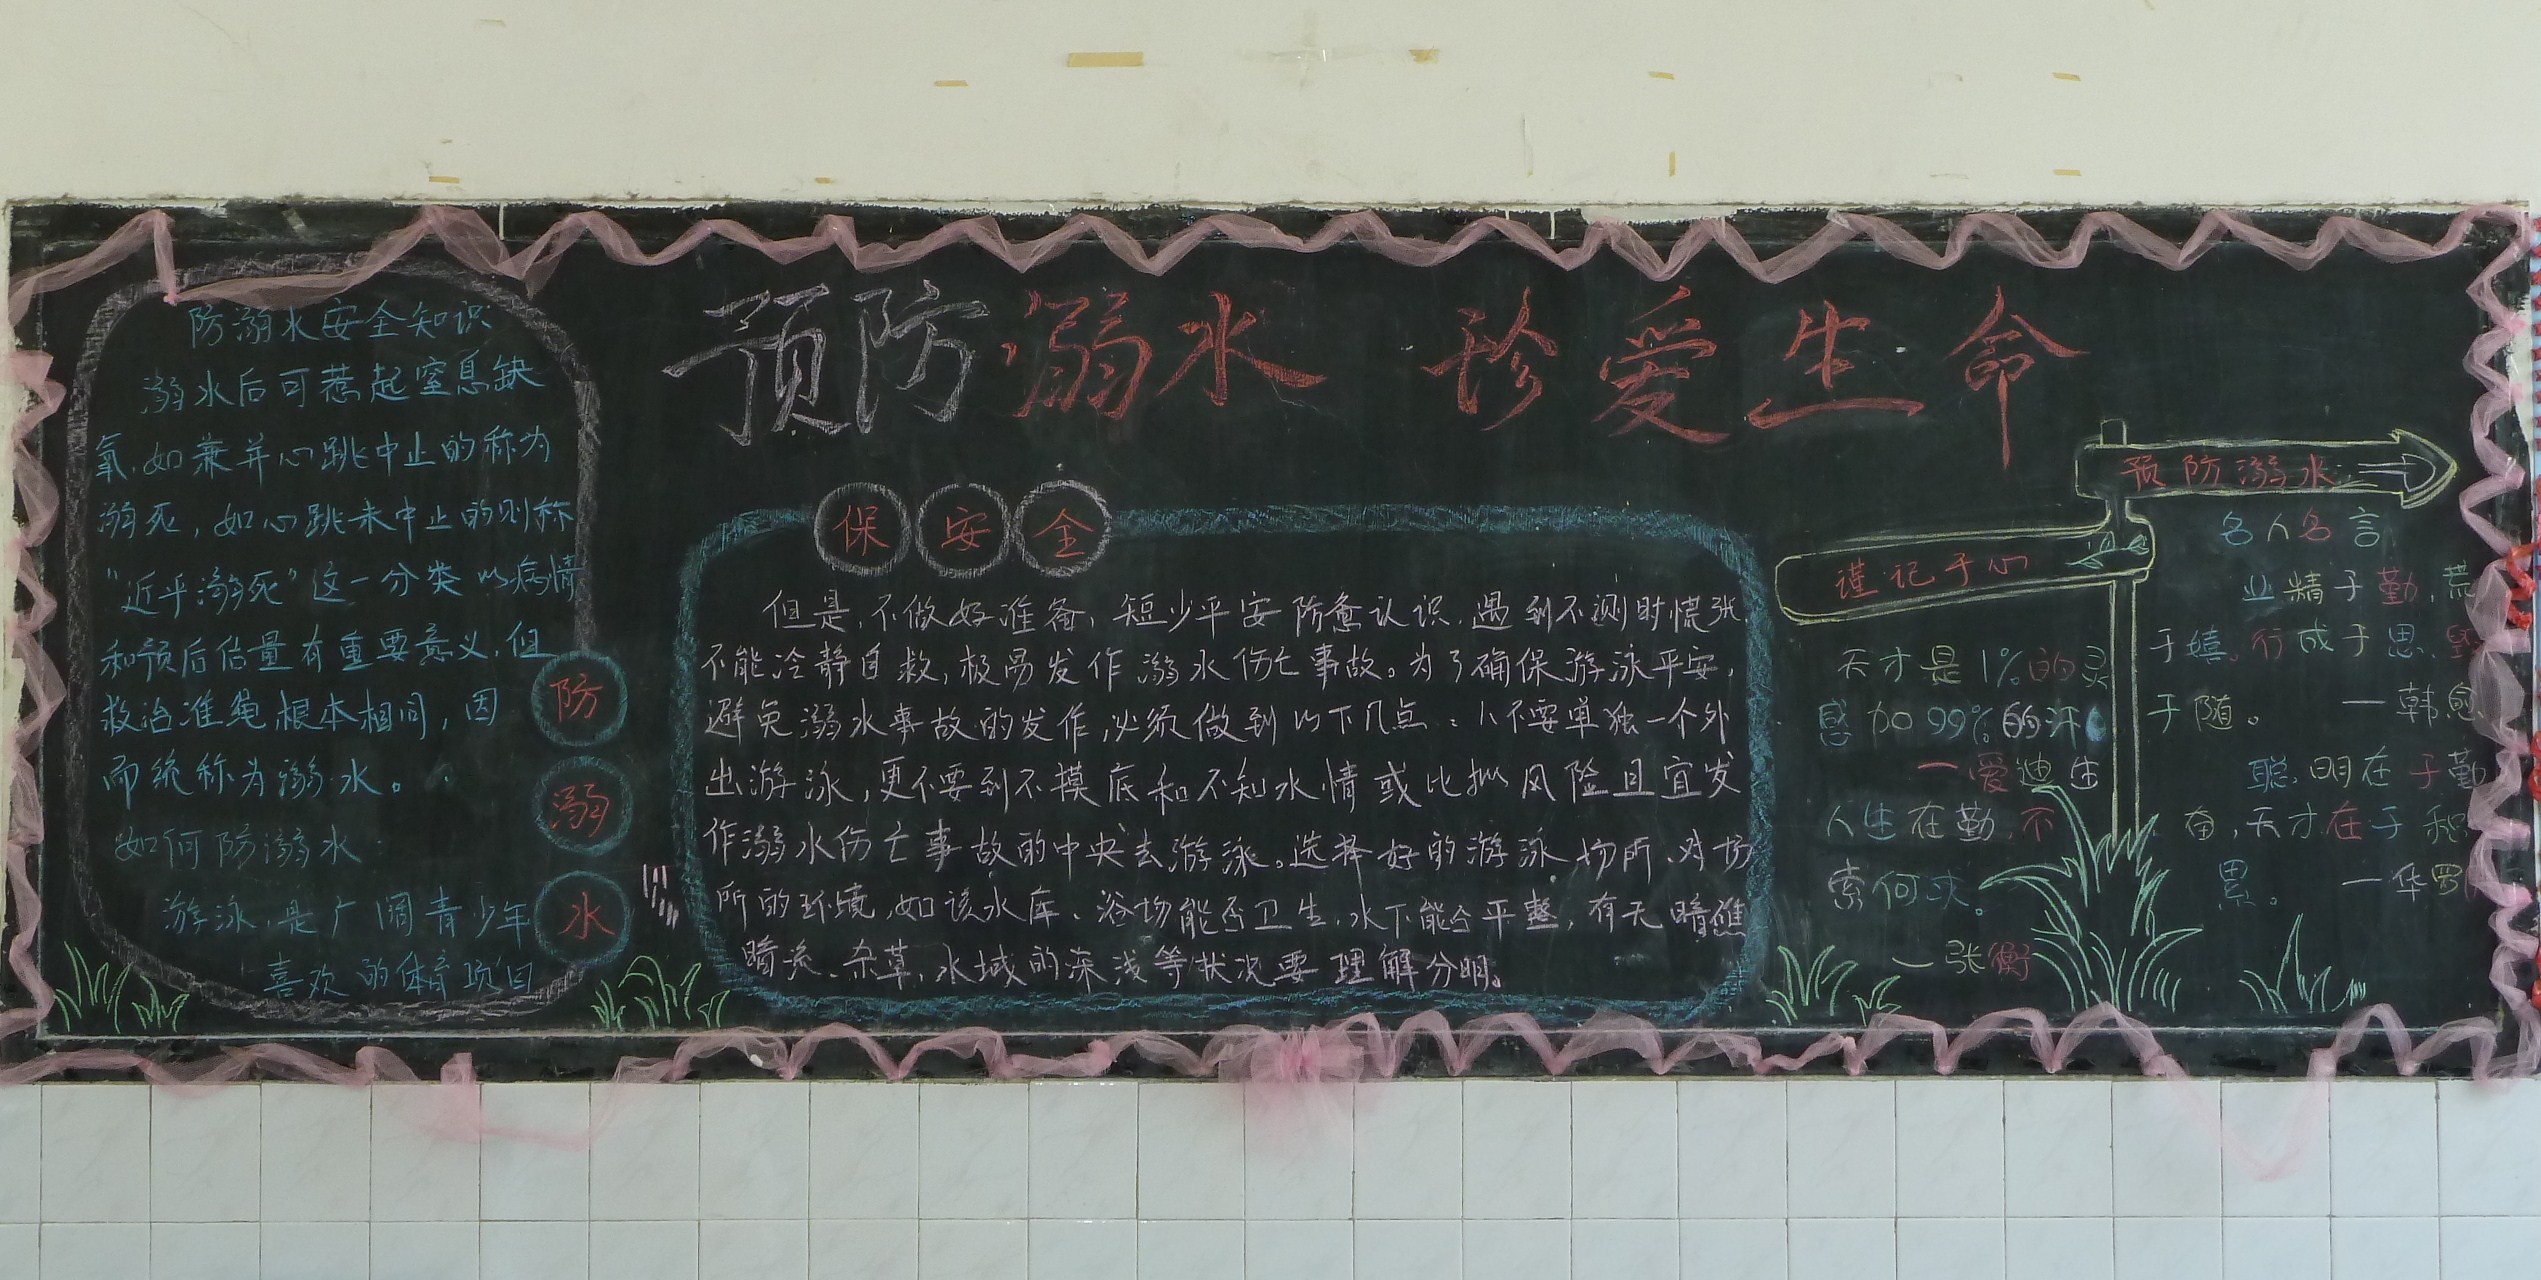 预防溺水 珍爱生命
防溺水安全知识
溺水后可惹起窒息缺
氧,如兼并心跳中止的称为
溺死,如心跳未中止的则称
“近乎溺死”这一分类以病情
和预后估量有重要意义,但
救治准绳根本相同,因
而统称为溺水。
如何防溺水:
游泳,是广阔青少年
喜欢的体育项目
防
溺
水
保安全
但是,不做好准备、短少平安防备认识,遇到不测时慌张、
不能冷静自救,极易发作溺水伤亡事故。为了确保游泳平安,
避免溺水事故的发作,必须做到以下几点:1、不要单独一个外
出游泳,更不要到不摸底和不知水情或比拟风险且宜发
作溺水伤亡事故的中央去游泳。选择好的游泳场所、对场
所的环境,如该水库、浴场能否卫生,水下能否平整,有无暗礁
暗流、杂草,水域的深浅等状况要理解分明。
预防溺水
谨记于心
天才是1%的灵
感加99%的汗
一爱迪生
人生在勤,不
索何求。
一张衡
名人名言
业精于勤,荒
于嬉,行成于思,毁
于随。 一韩愈
聪明在于勤
奋,天才在于积
累。 一华罗